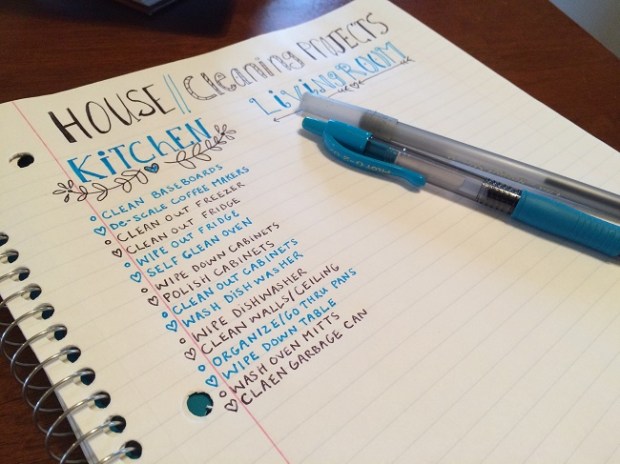 HOUSE // Cleaning PROJECTS
KiTCHEN
LiViNG ROOM
CLEAN BASEBOARDS
De-SCALE COFFEE MAKERS
CLEAN OUT FREEZER
CLEAN OUT FRIDGE
WIPE OUT FRIDGE
SELF CLEAN OVEN
WIPE DOWN CABINETS
POLISH CABINETS
CLEAN OUT CABINETS
WASH DISH WASHER
WIPE DISHWASHER
CLEAN WALLS/CEILING
ORGANIZE/GO THRU PANS
WIPE DOWN TABLE
WASH OVEN MITTS
CLAEN GARBAGE CAN